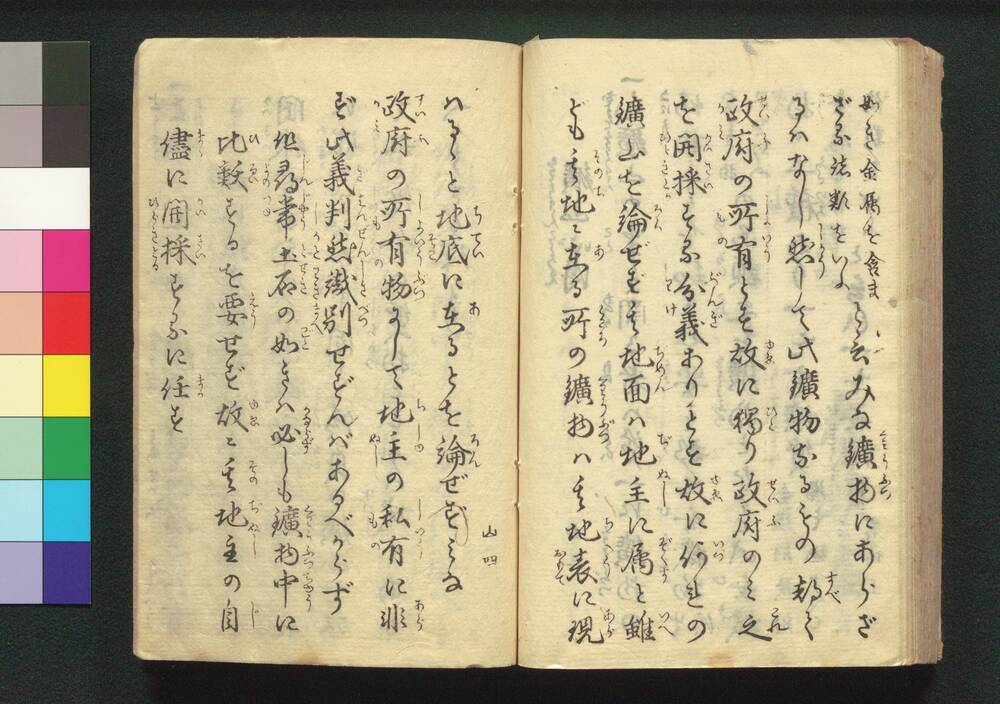 如き金属を含ま
ざる諸類をいふ
と云みな鑛物にあらざ
るハなし然して此鑛物なるもの都て
政府の所有とす故に獨り政府のミ之
を開採する分義ありとす故に何れの
鑛山を論ぜず其地面ハ地主に属と雖
ども其地に在る所の鑛物ハ其地表に現
ハるゝと地底に在るとを論ぜずミな
政府の所有物にして地主の私有に非
ず此義判然識別せずんバあるべからず
但尋常土石の如きハ必しも鑛物中に
比数するを要せず故に其地主の自
儘に開採するに任す
山四